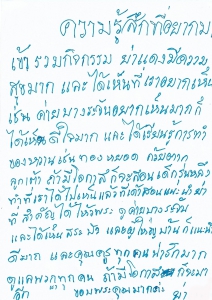 ความรู้สึกที่อยากมา
เข้าร่วมกิจกรรม ย่าแดงมีความ
สุขมาก และได้เห็นที่เราอยากเห็น
เช่น ค่ายบางระจันอยากเห็นมากก็
ได้เห็นดีใจมาก และได้เรียนรู้การทำ
ของหวานเช่นทองหยอด
ลูกเต้า ถ้ามีโอกาสก็จะสอนเด็กรุ่นหลัง
ที่เราได้ไปเห็นและก็ได้
ที่สำคัญได้ไหว้พระ ดูค่ายบางระจัน
และได้เห็นสระ
ดีมาก และคุณครูทุกคนน่ารักมาก
ดูแลพวกทุกคน ถ้ามีโอกาสก็จะมา
อีก ขอบพระคุณมากค่ะ ย่า